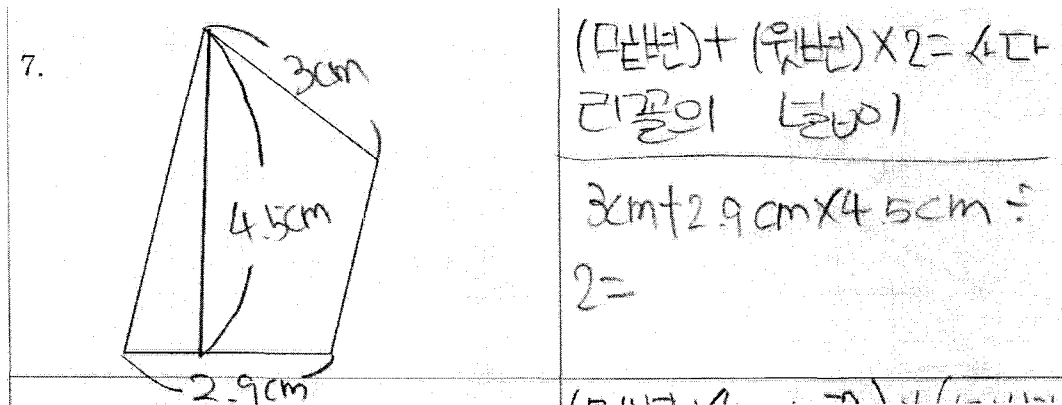 7.
3cm
4.5cm
2.9cm
(밑변)+(윗변)×2=사다
리꼴의 넓이
3cm+2.9cm×4.5cm÷
2=